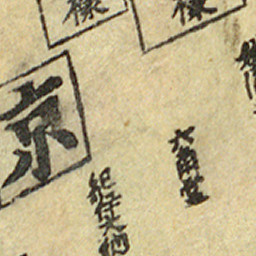 様
様
六角堂
京
紀伊大納